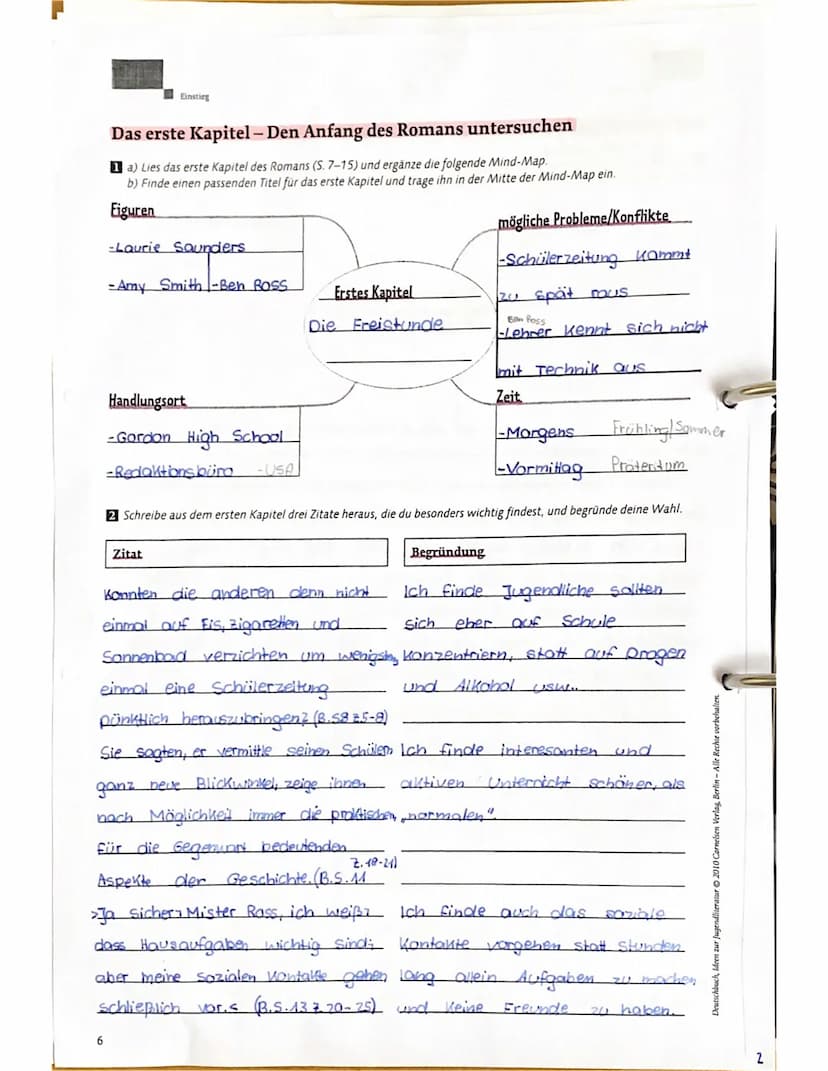 Einstieg
Das erste Kapitel – Den Anfang des Romans untersuchen
1 a) Lies das erste Kapitel des Romans (S. 7–15) und ergänze die folgende Mind-Map.
b) Finde einen passenden Titel für das erste Kapitel und trage ihn in der Mitte der Mind-Map ein.
Figuren
-Laurie Saunders
-Amy Smith -Ben Ross
mögliche Probleme/Konflikte
-Schülerzeitung kommt
zu spät raus
Ben Ross
-Lehrer kennt sich nicht
mit Technik aus
Erstes Kapitel
Die Freistunde
Handlungsort
-Gordon High School
-Redaktionsbüro -USA
Zeit
-Morgens Frühling/Sommer
-Vormittag Präteritum
2 Schreibe aus dem ersten Kapitel drei Zitate heraus, die du besonders wichtig findest, und begründe deine Wahl.
Zitat
Konnten die anderen denn nicht
einmal auf Eis, Zigaretten und
Sonnenbad verzichten um wenigstns
einmal eine Schülerzeitung
pünktlich herauszubringen? (B.S8 Z5-8)
Sie sagten, er vermittle seinen Schülern
ganz neue Blickwinkel, zeige ihnen
nach Möglichkeit immer die praktischen,
für die Gegenwart bedeutenden
Z. 18-21)
Aspekte der Geschichte. (B.S.11
>Ja sicher, Mister Ross, ich weiß,
dass Hausaufgaben wichtig sind,
aber meine sozialen Kontakte gehen
schließlich vor.< (B.S.13 Z 20-25)
Begründung
Ich finde Jugendliche sollten
sich eher auf Schule
konzentriern, statt auf Drogen
und Alkohol usw..
Ich finde interesanten und
aktiven Unterricht schöner, als
„normalen".
Ich finde auch das soziale
Kontakte vorgehen statt stunden
lang allein Aufgaben zu machen
und keine Freunde zu haben.
Deutschbuch, Ideen zur Jugendliteratur © 2010 Cornelsen Verlag, Berlin – Alle Rechte vorbehalten.
6
2